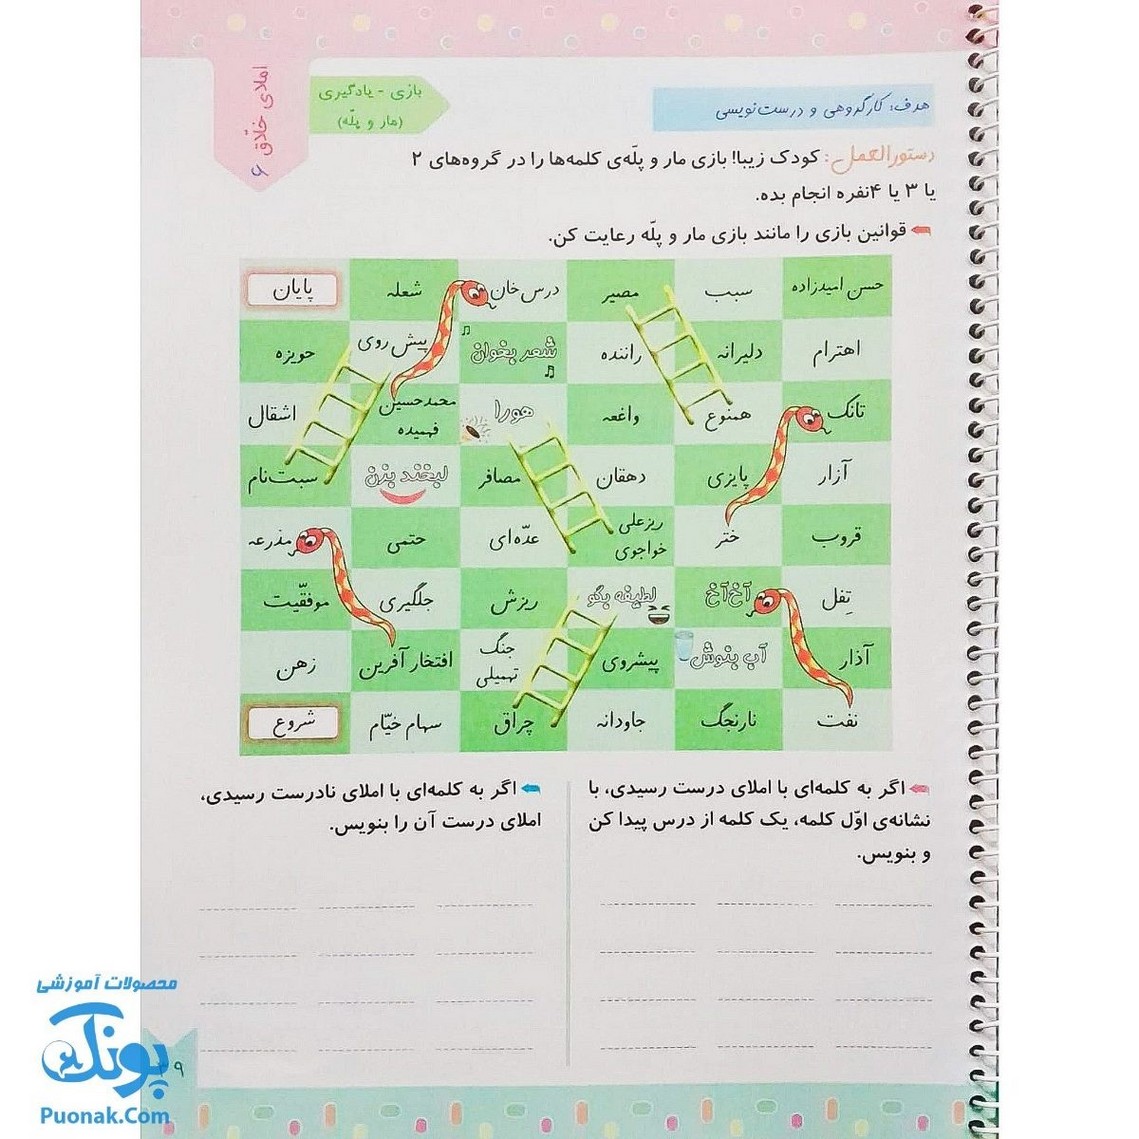 املای خلّاق ۶
بازی - یادگیری
(مار و پلّه)
هدف: کارگروهی و درست‌نویسی
دستورالعمل: کودک زیبا! بازی مار و پلّه‌ی کلمه‌ها را در گروه‌های ۲
یا ۳ یا ۴نفره انجام بده.
قوانین بازی را مانند بازی مار و پلّه رعایت کن.
حسن امیدزاده سبب مصیر درس‌خان شعله پایان
اهترام دلیرانه راننده شعر بخوان پیش روی حویزه
تانک همنوع واغعه هورا محمدحسین فهمیده اشقال
آزار پایزی دهقان مصافر لبخند بزن سبت‌نام
قروب ختر ریزعلی خواجوی عدّه‌ای حتمی مذرعه
تِفل آخ‌آخ لطیفه بگو ریزش جلگیری موفقّیت
آذار آب بنوش پیشروی جنگ تهمیلی افتخارآفرین زهن
نفت نارنجگ جاودانه چراق سهام خیّام شروع
اگر به کلمه‌ای با املای درست رسیدی، با
نشانه‌ی اوّل کلمه، یک کلمه از درس پیدا کن
و بنویس.
اگر به کلمه‌ای با املای نادرست رسیدی،
املای درست آن را بنویس.
محصولات آموزشی
پونک
Puonak.Com